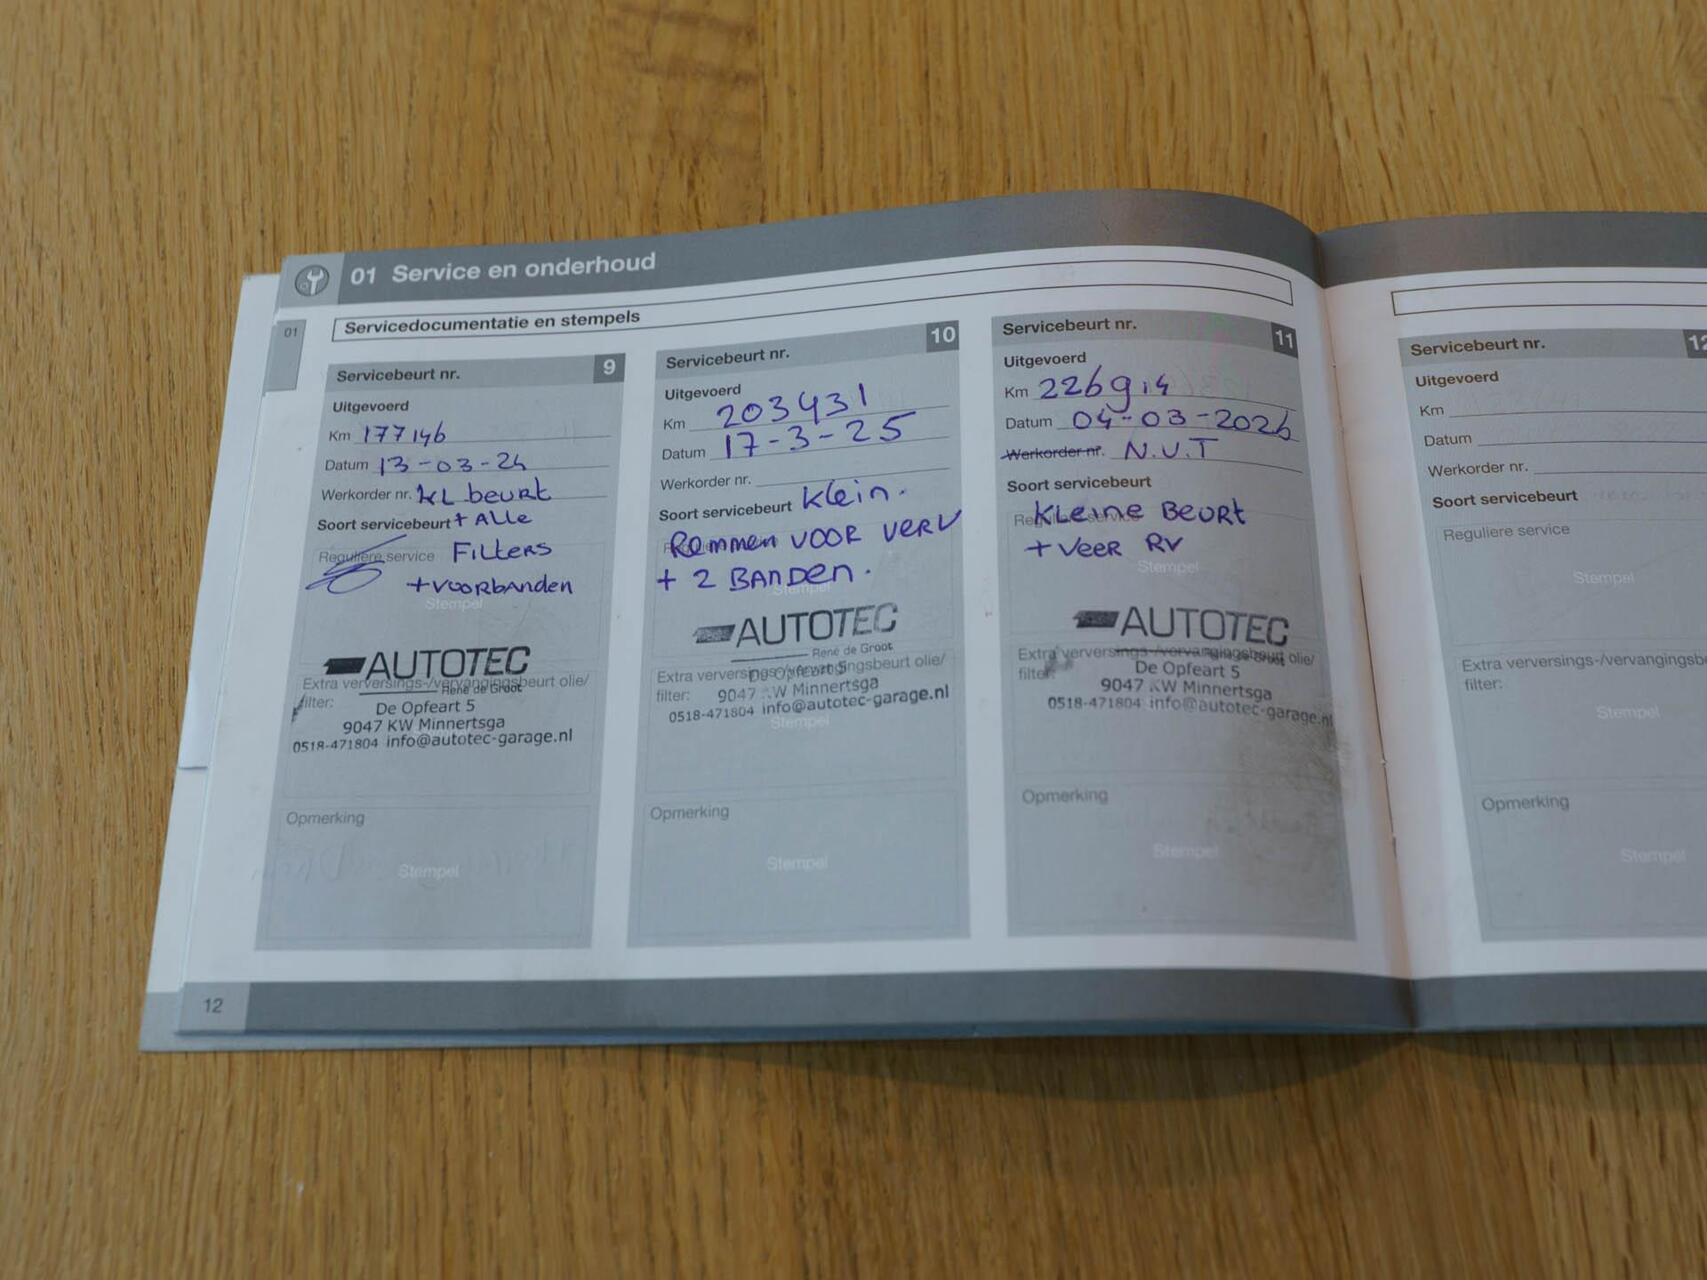 01 Service en onderhoud
01
Servicedocumentatie en stempels
Servicebeurt nr. 9
Uitgevoerd
Km 177146
Datum 13-03-24
Werkorder nr. KL beurt
Soort servicebeurt + Alle
Reguliere service Filters
+ voorbanden
Stempel
AUTOTEC
René de Groot
Extra verversings-/vervangingsbeurt olie/
filter:
De Opfeart 5
9047 KW Minnertsga
0518-471804 info@autotec-garage.nl
Opmerking
Stempel
Servicebeurt nr. 10
Uitgevoerd
Km 203431
Datum 17-3-25
Werkorder nr.
Soort servicebeurt Klein.
Remmen voor verv
+ 2 Banden.
Stempel
AUTOTEC
René de Groot
Extra verversings-/vervangingsbeurt olie/
De Opfeart 5
filter:
9047 KW Minnertsga
0518-471804 info@autotec-garage.nl
Stempel
Opmerking
Stempel
Servicebeurt nr. 11
Uitgevoerd
Km
Datum 04-03-2026
Werkorder nr. N.V.T
Soort servicebeurt
Reguliere service
Kleine Beurt
+ Veer RV
Stempel
AUTOTEC
René de Groot
Extra verversings-/vervangingsbeurt olie/
filter:
De Opfeart 5
9047 KW Minnertsga
0518-471804 info@autotec-garage.nl
Opmerking
Stempel
Servicebeurt nr. 12
Uitgevoerd
Km
Datum
Werkorder nr.
Soort servicebeurt
Reguliere service
Stempel
Extra verversings-/vervangingsb
filter:
Stempel
Opmerking
Stempel
12